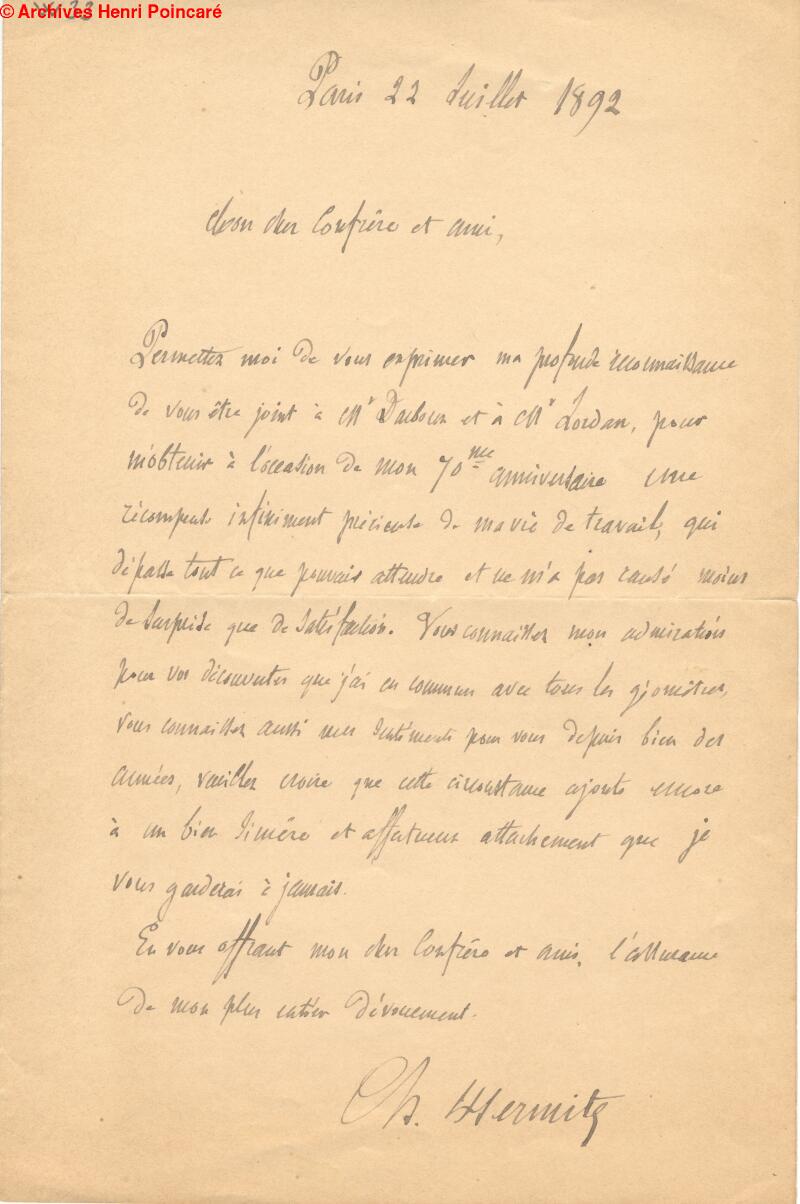 © Archives Henri Poincaré
Paris 22 Juillet 1892
Mon cher Confrère et ami,
Permettez moi de vous exprimer ma profonde reconnaissance
de vous être joint à Mr Darboux et à Mr Jordan, pour
m'obtenir à l'occasion de mon 70me anniversaire une
récompense infiniment précieuse de ma vie de travail, qui
dépasse tout ce que pouvais attendre et ne m'a pas causé moins
de surprise que de satisfaction. Vous connaissez mon admiration
pour vos découvertes que j'ai en commun avec tous les géomètres,
vous connaissez aussi mes sentiments pour vous depuis bien des
années, veuillez croire que cette circonstance ajoute encore
à un bien sincère et affectueux attachement que je
vous garderai à jamais.
En vous offrant mon cher Confrère et ami, l'assurance
de mon plus entier dévouement.
Ch. Hermite